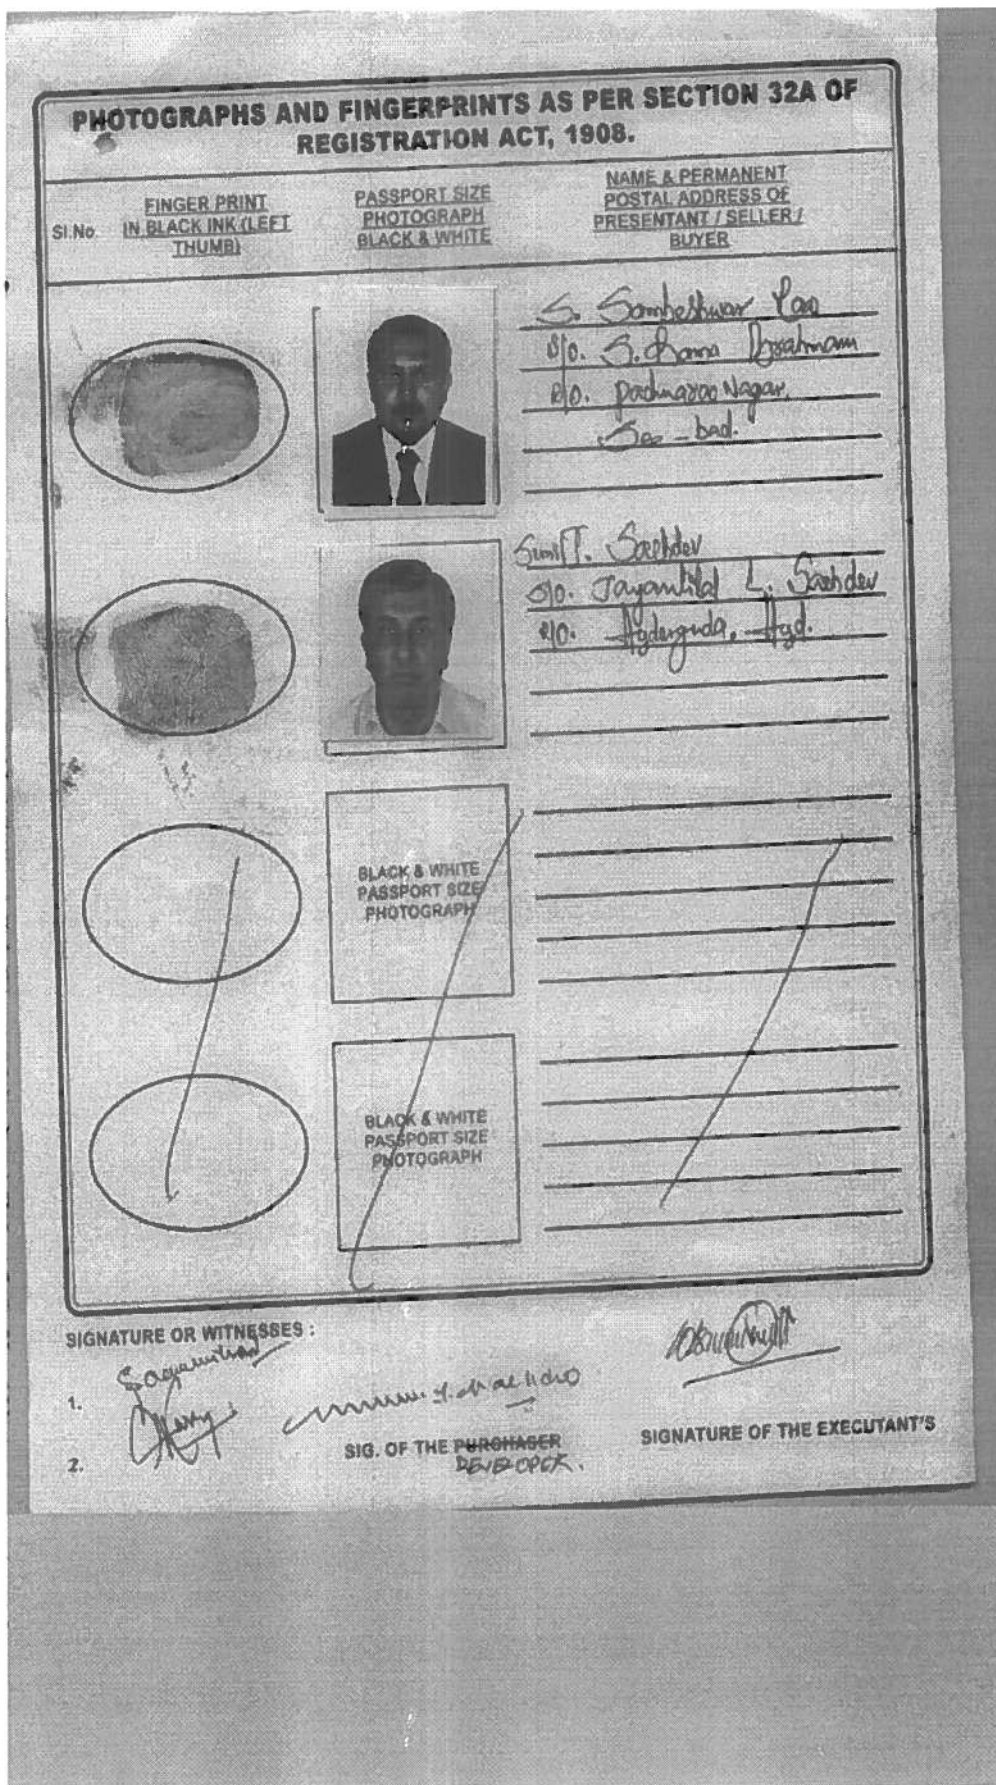 PHOTOGRAPHS AND FINGERPRINTS AS PER SECTION 32A OF
REGISTRATION ACT, 1908.
Sl.No.
FINGER PRINT
IN BLACK INK (LEFT
THUMB)
PASSPORT SIZE
PHOTOGRAPH
BLACK & WHITE
NAME & PERMANENT
POSTAL ADDRESS OF
PRESENTANT / SELLER /
BUYER
S. Sombeshwar Rao
S/o. S. Rama Brahmam
R/o. Padmarao Nagar,
Sec-bad.
Sunil J. Sachdev
S/o. Jayantilal L. Sachdev
R/o. Hyderguda, Hyd.
BLACK & WHITE
PASSPORT SIZE
PHOTOGRAPH
BLACK & WHITE
PASSPORT SIZE
PHOTOGRAPH
SIGNATURE OR WITNESSES :
1.
2.
SIG. OF THE PURCHASER
DEVELOPER.
SIGNATURE OF THE EXECUTANT'S